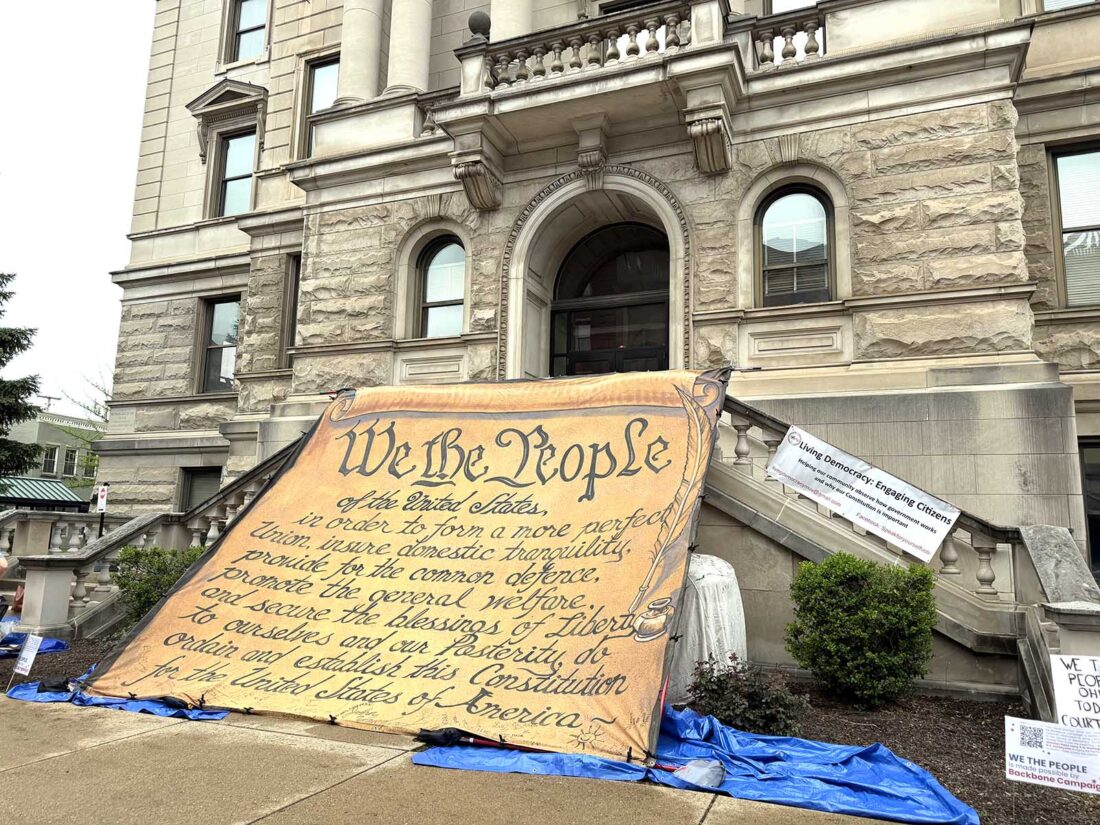 We the People
of the United States,
in order to form a more perfect
Union, insure domestic tranquility,
provide for the common defence,
promote the general welfare,
and secure the blessings of Liberty
to ourselves and our Posterity, do
ordain and establish this Constitution
for the United States of America ~
Living Democracy: Engaging Citizens
Helping our community observe how government works
and why our Constitution is important
WE T
PEOP
OH
TOD
COURT
WE THE PEOPLE
is made possible by
Backbone Campaig